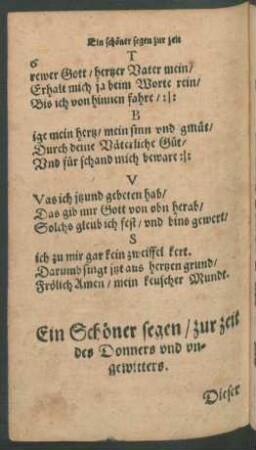 Ein schöner segen zur zeit
6
T
rewer Gott / hertzer Vater mein /
Erhalt mich ja beim Worte rein /
Bis ich von hinnen fahre / :|:
B
ige mein hertz / mein sinn vnd gmüt /
Durch deine Väterliche Güt /
Vnd für schand mich bewart :|:
V
Vas ich itzund gebeten hab /
Das gib mir Gott von obn herab /
Solchs gleub ich fest / vnd bins gewert /
S
ich zu mir gar kein zweiffel kert.
Darumb singt itzt aus hertzen grund /
Frölich Amen / mein keuscher Mundt.
Ein Schöner segen / zur zeit
des Donners vnd vn-
gewitters.
Dieser